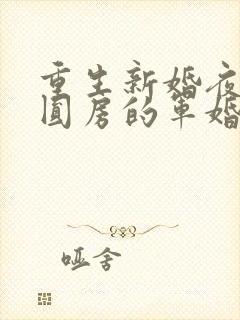 重生新婚夜
圆房的军婚
哑舍